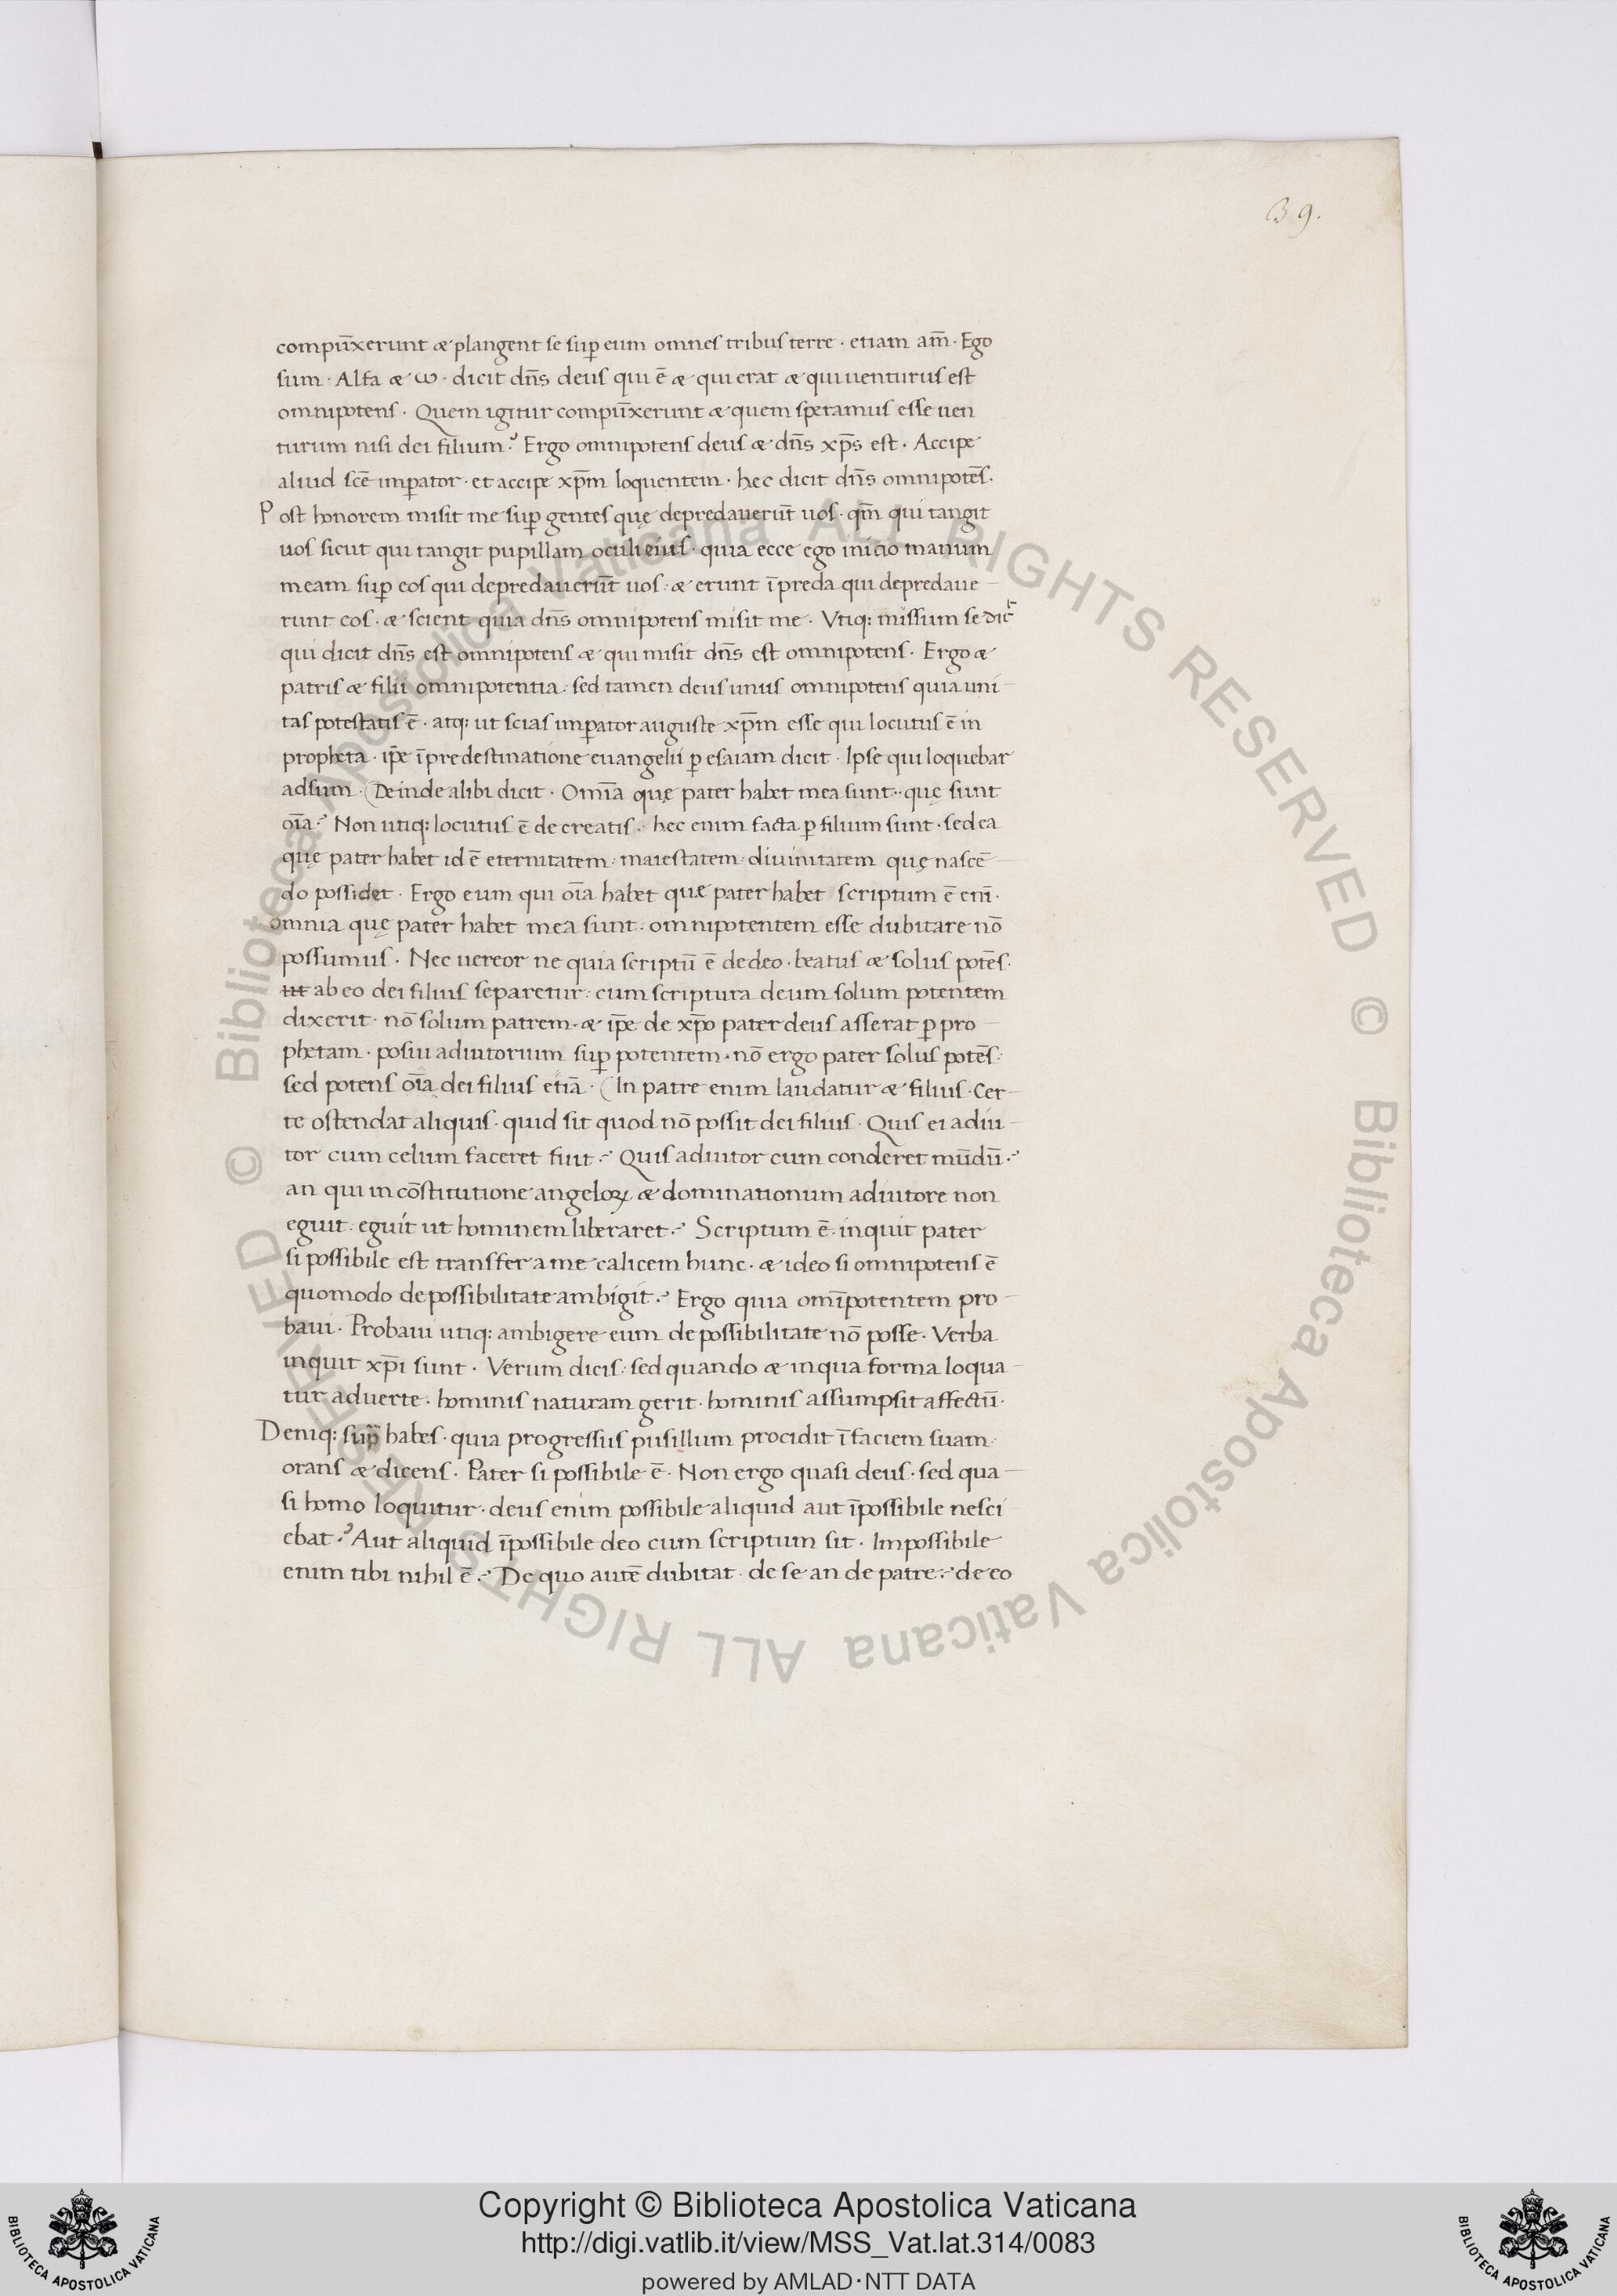 39.
compūxerunt æ plangent se sup̱ eum omnes tribus terre · etiam am̄ · Ego
sum · Alfa æ ω · dicit dn̄s deus qui ē æ qui erat æ qui uenturus est
omnipotens · Quem igitur compūxerunt æ quem speramus esse uen
turum nisi dei filium? Ergo omnipotens deus æ dn̄s xp̄s est · Accipe
aliud scē imꝑator · et accipe xp̄m loquentem · hec dicit dn̄s omnipotēs ·
Post honorem misit me suꝑ gentes quę depredauerūt uos · qm̄ qui tangit
uos sicut qui tangit pupillam oculi eius · quia ecce ego inicio manum
meam suꝑ eos qui depredauerūt uos · æ erunt ī preda qui depredaue
runt eos · æ scient quia dn̄s omnipotens misit me · Vtiq: missum se dic̄
qui dicit dn̄s est omnipotens æ qui misit dn̄s est omnipotens · Ergo æ
patris æ filii omnipotentia · sed tamen deus unus omnipotens quia uni
tas potestatis ē · atq: ut scias imꝑator auguste xp̄m esse qui locutus ē in
propheta · ip̄e ī predestinatione euangelii ꝑ esaiam dicit · Ipse qui loquebar
adsum · (Deinde alibi dicit · Om̄ia quę pater habet mea sunt · quę sunt
oīa? Non utiq: locutus ē de creatis · hec enim facta ꝑ filium sunt · sed ea
quę pater habet id ē eternitatem · maiestatem · diuinitatem quę nascē
do possidet · Ergo eum qui oīa habet quæ pater habet scriptum ē eni᷒ ·
omnia quę pater habet mea sunt · omnipotentem esse dubitare nō
possumus · Nec uereor ne quia scriptū ē de deo · beatus æ solus potēs ·
ut ab eo dei filius separetur · cum scriptura deum solum potentem
dixerit · nō solum patrem · æ ip̄e de xp̄o pater deus asserat ꝑ pro
phetam · posui adiutorium suꝑ potentem · nō ergo pater solus potēs ·
sed potens oīa dei filius etiā · (In patre enim laudatur æ filius · Cer
te ostendat aliquis · quid sit quod nō possit dei filius · Quis ei adiu
tor cum celum faceret fuit? Quis adiutor cum conderet mūdū?
an qui in cōstitutione angeloꝝ æ dominationum adiutore non
eguit · eguit ut hominem liberaret? Scriptum ē · inquit pater
si possibile est transfer a me calicem hunc · æ ideo si omnipotens ē
quomodo de possibilitate ambigit? Ergo quia omīpotentem pro
baui · Probaui utiq: ambigere eum de possibilitate nō posse · Verba
inquit xp̄i sunt · Verum dicis · sed quando æ in qua forma loqua
tur aduerte · hominis naturam gerit · hominis assumpsit affectū ·
Deniq: habes · quia progressus pusillum procidit ī faciem suam ·
orans æ dicens · Pater si possibile ē · Non ergo quasi deus · sed qua
si homo loquitur · deus enim possibile aliquid aut īpossibile nesci
ebat? Aut aliquid īpossibile deo cum scriptum sit · Impossibile
enim tibi nihil ē? De quo autē dubitat · de se an de patre? de eo
Copyright © Biblioteca Apostolica Vaticana
http://digi.vatlib.it/view/MSS_Vat.lat.314/0083
powered by AMLAD·NTT DATA
BIBLIOTECA APOSTOLICA VATICANA
BIBLIOTECA APOSTOLICA VATICANA
© Biblioteca Apostolica Vaticana ALL RIGHTS RESERVED
© Biblioteca Apostolica Vaticana ALL RIGHTS RESERVED